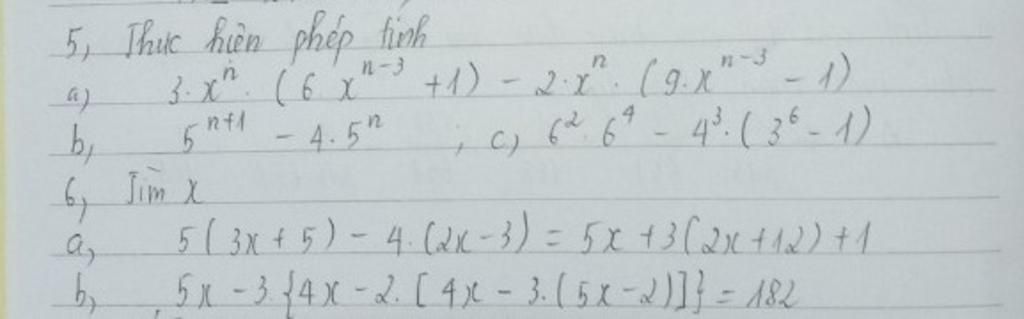 5, Thực hiện phép tính
a) 3·xⁿ·(6·xⁿ⁻³ + 1) − 2·xⁿ·(9·xⁿ⁻³ − 1)
b, 5ⁿ⁺¹ − 4.5ⁿ ; c, 6²·6⁴ − 4³·(3⁶ − 1)
6, Tìm x
a, 5(3x + 5) − 4.(2x − 3) = 5x + 3(2x + 12) + 1
b, 5x − 3.{4x − 2.[4x − 3.(5x − 2)]} = 182